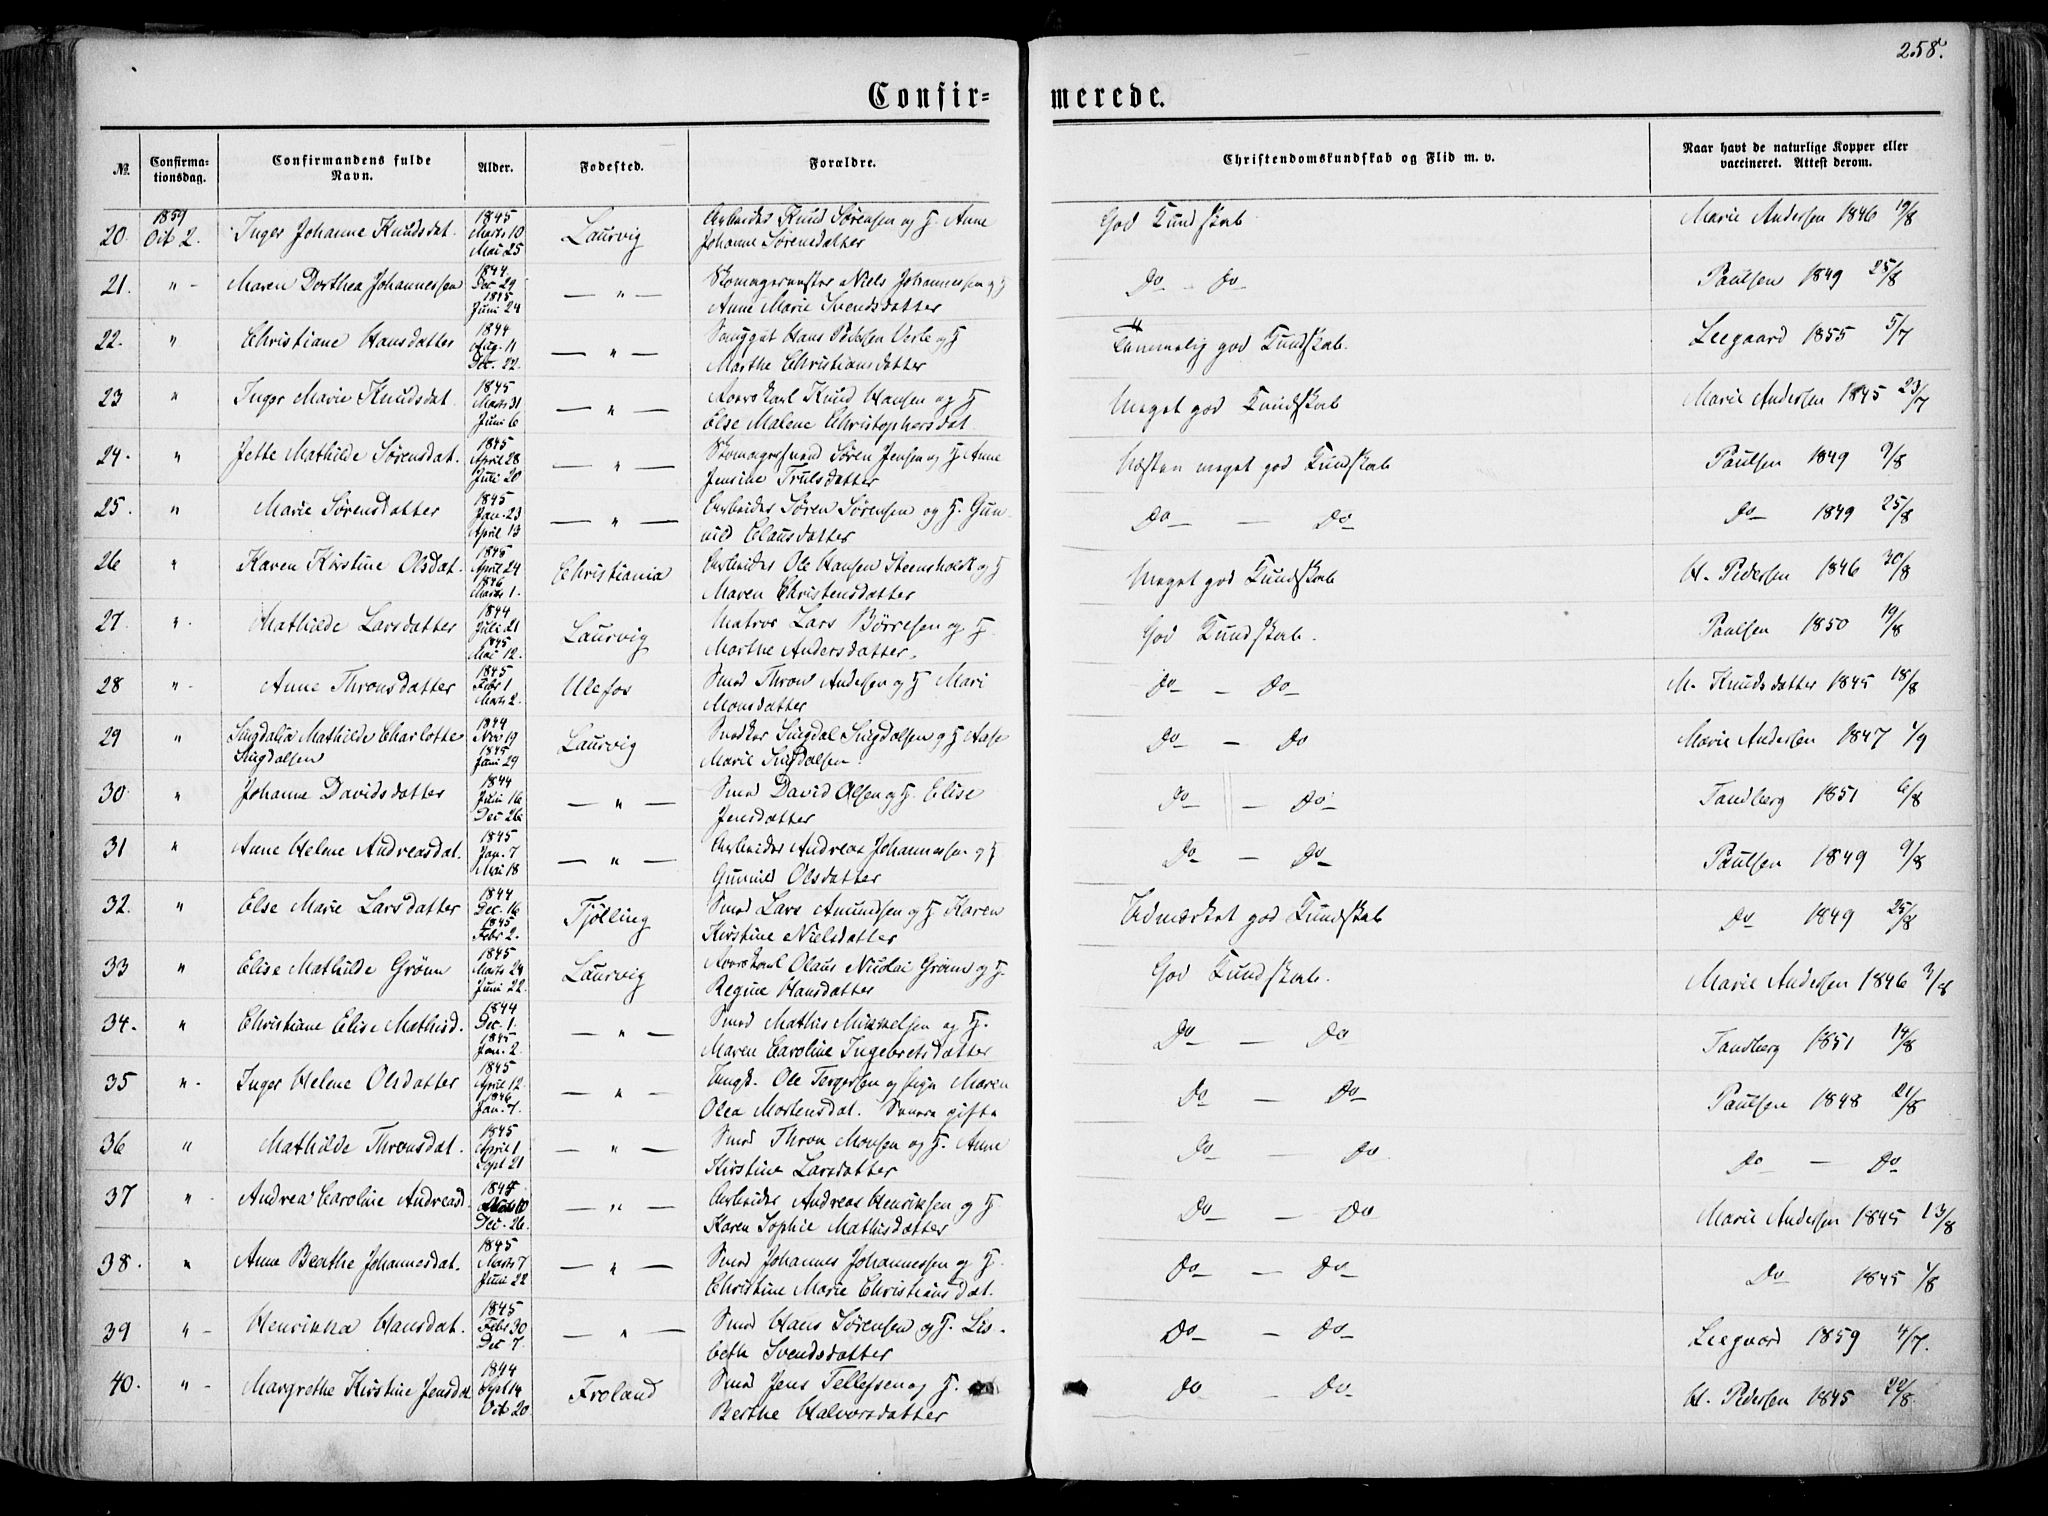 258.
Confir= merede.
№. Confirma-tionsdag. Confirmandens fulde Navn. Alder. Fodested. Forældre. Christendomskundskab og Flid m. v. Naar havt de naturlige Kopper eller vaccineret. Attest derom.
20. 1859 Oct 2. Inger Johanne Knudsdat. 1845 Marts 10 Mai 25 Laurvig Arbeider Knud Sørensen og H. Anne Johanne Sørensdatter God Kundskab Marie Andersen 1846 19/8
21. " Maren Dorthea Johannessen 1844 Dec 29 1845 Juni 24 — " — Skomagermester Niels Johannessen og H Anne Marie Svendsdatter Do — Do Paulsen 1849 25/8
22. " Christiane Hansdatter 1844 Aug. 11 Dec. 22. — " — Hans Pedersen Vesle og H Marthe Christiansdatter Temmelig god Kundskab. Leegaard 1855 5/7
23 " Inger Marie Knudsdat. 1845 Marts 31 Juni 6 — " — Knud Hansen og H Else Malene Christophersdat Meget god Kundskab Marie Andersen 1845 23/7
24. " Jette Mathilde Sørensdat. 1845 April 28 Juli 20 — " — Skomagersvend Søren Jensen og H Anne Jensine Trulsdatter Næsten meget god Kundskab Paulsen 1849 9/8
25. " Marie Sørensdatter 1845 Jan. 23 April 13 — " — Arbeider Søren Sørensen og H. Gunnild Clausdatter Do — Do Do 1849 25/8
26 " Karen Kirstine Olsdat. 1845 April 24 1846 Marts 1. Christiania Arbeider Ole Hansen Steensholt og H Maren Christensdatter Meget god Kundskab H. Pedersen 1846 30/8
27. " Mathilde Larsdatter 1844 Juli 21 1845 Mai 12. Laurvig Matros Lars Børresen og H. Marthe Andersdatter. God Kundskab. Paulsen 1850 19/8
28 " Anne Thronsdatter 1845 Febr 1 Marts 2. Ulefos Smed Thron Andersen og H Mari Monsdatter Do — Do M. Knudsdatter 1845 18/8
29 " Singdalia Mathilde Charlotte Singdalsen 1844 Nov 19 1845 Juni 29 Laurvig Snedker Singdal Singdalsen og H Aase Marie Singdalsen. Do — Do Marie Andersen 1847 1/9
30. " Johanne Davidsdatter 1844 Juni 16 Dec 26 — " — Smed David Olsen og H. Elise Jensdatter Do — Do Tandberg 1851 6/8
31 " Anne Helene Andreasdat. 1845 Jan. 7 Mai 18 — " — Arbeider Andreas Johannessen og H Gunnild Olsdatter Do — Do Paulsen 1849 9/8
32. " Else Marie Larsdatter 1844 Dec. 16 1845 Febr 2. Tjölling Smed Lars Amundsen og H Karen Kirstine Nielsdatter Udmærket god Kundskab Do 1849 25/8
33 " Elise Mathilde Grönn 1845 Marts 24 Juni 22. Laurvig Olaus Nicolai Grönn og H. Regine Hansdatter God Kundskab. Marie Andersen 1846 3/8
34. " Christiane Elise Mathisd. 1844 Dec. 1. 1845 Jan. 2. — " — Smed Mathis Mikkelsen og H. Maren Caroline Ingebretsdatter Do — Do Tandberg 1851 14/8
35 " Inger Helene Olsdatter 1845 April 12 1846 Jan. 7. — " — Ungk. Ole Tergersen og Pige Maren Olea Mortensdat. Senere gifte Do — Do Paulsen 1848 21/8
36 " Mathilde Thronsdat. 1845 April 1 Sept 21 — " — Smed Thron Monsen og H. Anne Kirstine Larsdatter Do — Do Do — Do
37 " Andrea Caroline Andreasd. 1844 10 Dec. 26. — " — Arbeider Andreas Henriksen og H Karen Sophie Mathisdatter Do — Do Marie Andersen 1845 13/8
38. " Anne Berthe Johannesdat. 1845 Marts 7 Juni 22 — " — Smed Johannes Johannessen og H. Christine Marie Christiansdat. Do — Do Do 1845 1/8
39 " Henrikka Hansdat. 1845 Febr 30 Dec 7. — " — Smed Hans Sørensen og H. Lisbeth Svendsdatter Do — Do Leegaard 1859 4/7.
40. " Margrethe Kirstine Jensdat 1844 Sept 14 Oct 20 Froland Smed Jens Tellefsen og H. Berthe Halvorsdatter Do — Do H. Pedersen 1845 22/8.